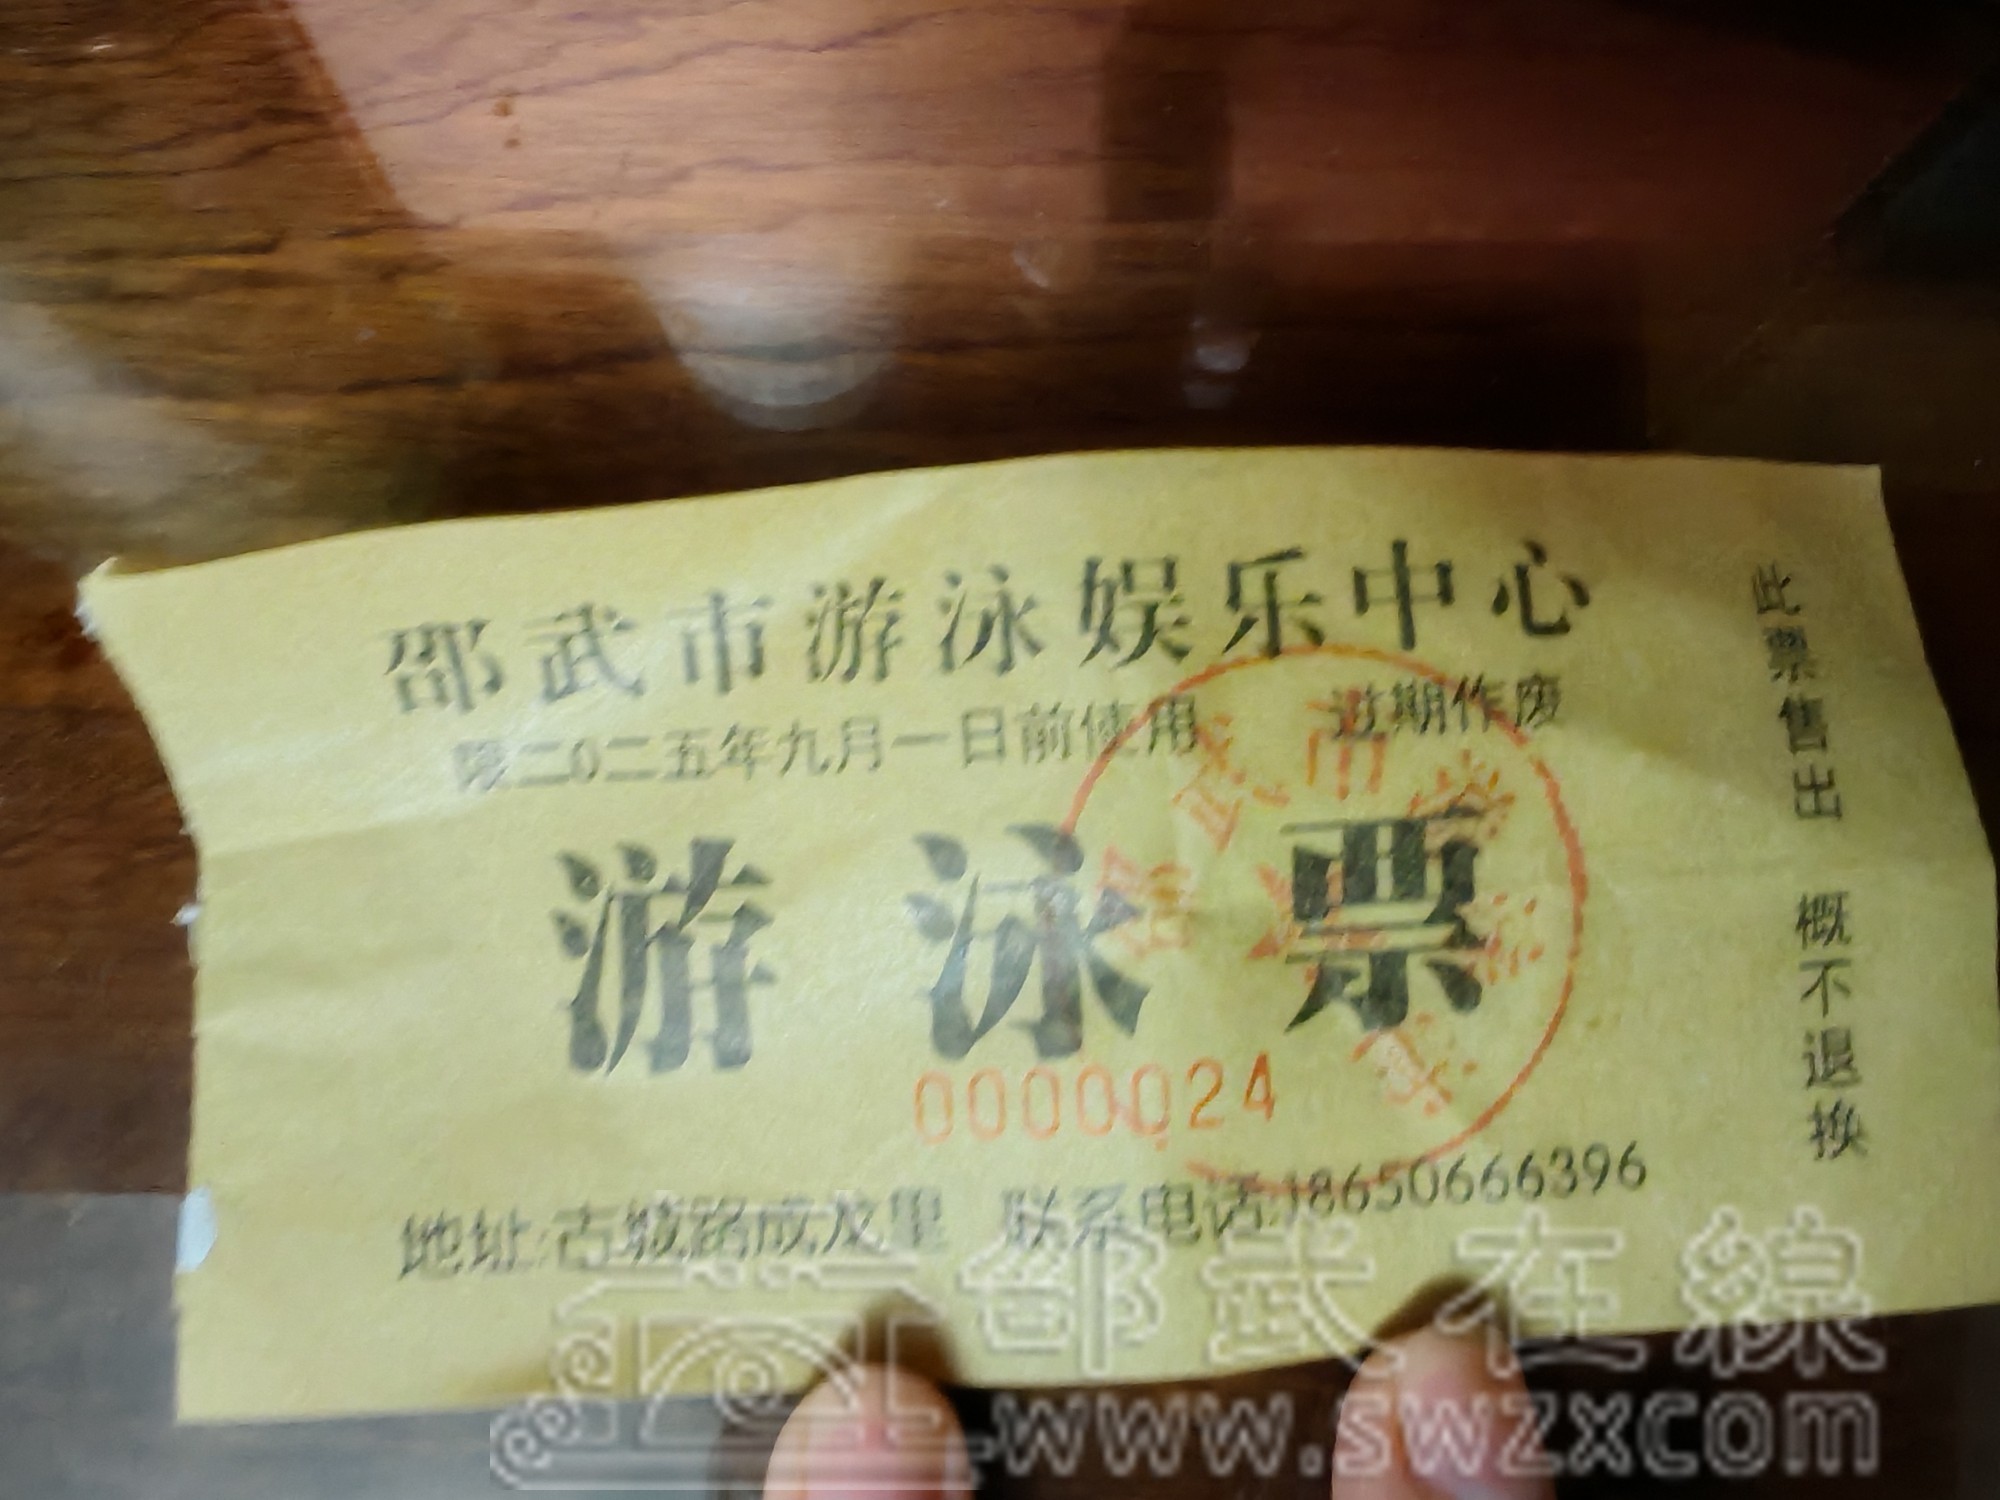 邵武市游泳娱乐中心
限二0二五年九月一日前使用 过期作废
游泳票
0000024
地址:古城路成龙里 联系电话:18650666396
此票售出 概不退换
邵武市游泳
邵武在線
www.swzx.com